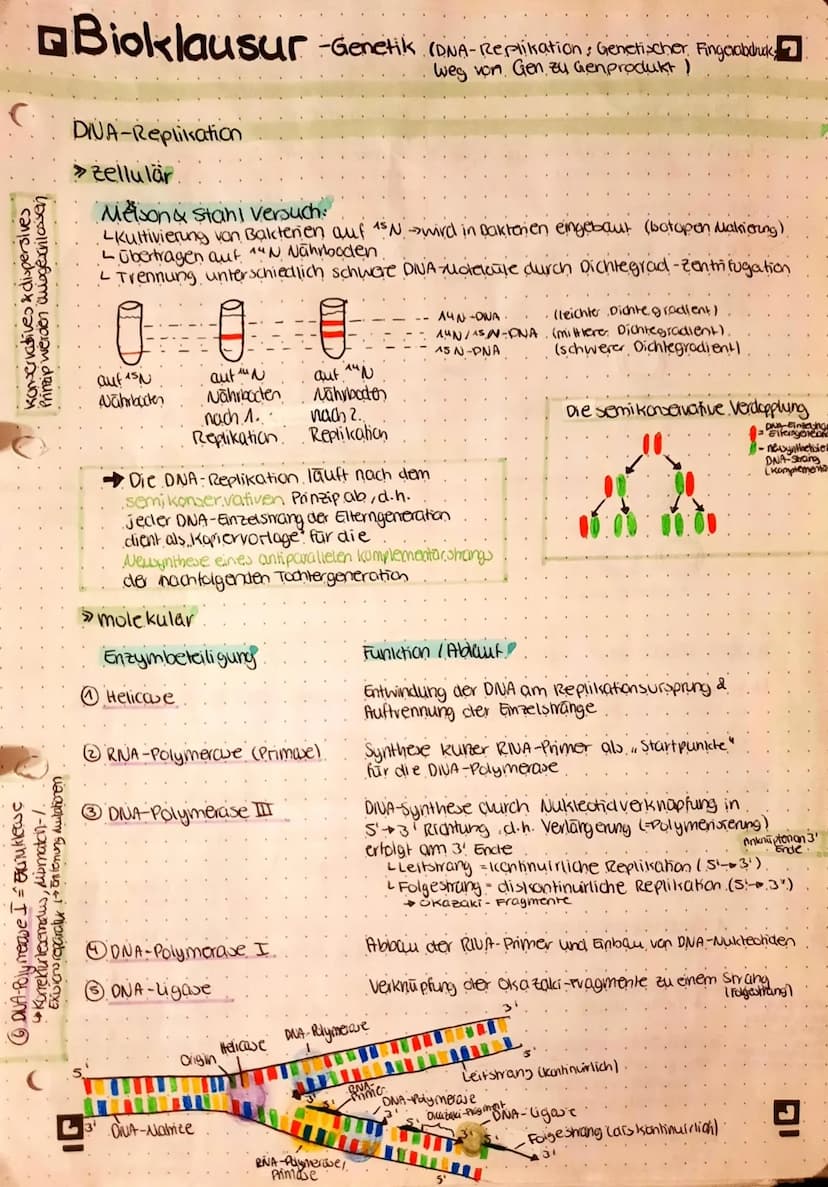 Bioklausur - Genetik (DNA-Replikation; Genetischer Fingerabdruck;
Weg von Gen zu Genprodukt)
DNA-Replikation
» zellulär
Melson & Stahl Versuch:
↳ Kultivierung von Bakterien auf ¹⁵N → wird in Bakterien eingebaut (Isotopen Makierung)
↳ Übertragen auf ¹⁴N Nährboden
↳ Trennung unterschiedlich schwere DNA-Moleküle durch Dichtegrad-Zentrifugation
Konservatives & dispersives
Prinzip werden ausgeschlossen
14N-DNA (leichter Dichtegradient)
14N/15N-DNA (mittlerer Dichtegradient)
15N-DNA (schwerer Dichtegradient)
auf ¹⁵N
Nährboden
auf ¹⁴N
Nährboden
nach 1.
Replikation
auf ¹⁴N
Nährboden
nach 2.
Replikation
Die semikonservative Verdopplung
= Elterngeneration
DNA-Strang
→ Die DNA-Replikation läuft nach dem
semikonservativen Prinzip ab, d.h.
jeder DNA-Einzelstrang der Elterngeneration
dient als „Kopiervorlage" für die
Neusynthese eines antiparallelen Komplementärstrangs
der nachfolgenden Tochtergeneration
» molekular
Enzymbeteiligung
Funktion / Ablauf
① Helicase
Entwindung der DNA am Replikationsursprung &
Auftrennung der Einzelstränge
② RNA-Polymerase (Primase)
Synthese kurzer RNA-Primer als „Startpunkte"
für die DNA-Polymerase
③ DNA-Polymerase III
DNA-Synthese durch Nukleotidverknüpfung in
5'→3' Richtung, d.h. Verlängerung (=Polymerisierung)
erfolgt am 3' Ende
Anknüpfen an 3'
Ende
↳ Leitstrang = kontinuirliche Replikation (5'→3')
↳ Folgestrang = diskontinuirliche Replikation (5'→3')
→ Okazaki-Fragmente
④ DNA-Polymerase I
Abbau der RNA-Primer und Einbau von DNA-Nukleotiden
⑤ DNA-Ligase
Verknüpfung der Okazaki-Fragmente zu einem Strang
(Folgestrang)
⑥ DNA-Polymerase I
5'
3'
Origin
Helicase
DNA-Polymerase
3'
5'
DNA-Matrize
Leitstrang (kontinuirlich)
RNA-
Primer
DNA-Polymerase
3'
5'
Okazaki-Fragment
DNA-Ligase
5'
Folgestrang (diskontinuirlich)
3'
RNA-Polymerase/
Primase
5'